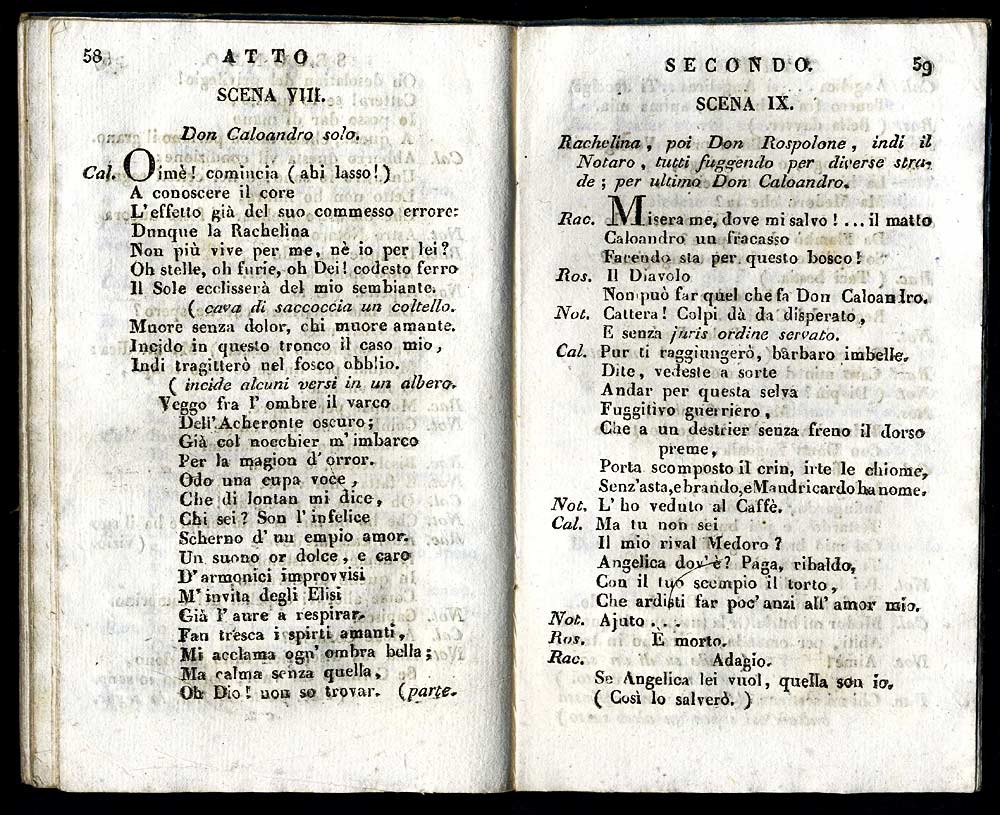 58
ATTO
SCENA VIII.
Don Caloandro solo.
Cal. Oimè! comincia (ahi lasso!)
A conoscere il core
L'effetto già del suo commesso errore:
Dunque la Rachelina
Non più vive per me, nè io per lei?
Oh stelle, oh furie, oh Dei! codesto ferro
Il Sole ecclisserà del mio sembiante.
( cava di saccoccia un coltello.
Muore senza dolor, chi muore amante.
Incido in questo tronco il caso mio,
Indi tragitterò nel fosco obblio.
( incide alcuni versi in un albero.
Veggo fra l'ombre il varco
Dell'Acheronte oscuro;
Già col nocchier m'imbarco
Per la magion d'orror.
Odo una cupa voce,
Che di lontan mi dice,
Chi sei? Son l'infelice
Scherno d'un empio amor.
Un suono or dolce, e caro
D'armonici improvvisi
M'invita degli Elisi
Già l'aure a respirar.
Fan tresca i spirti amanti,
Mi acclama ogn'ombra bella;
Ma calma senza quella,
Oh Dio! non so trovar. (parte.
SECONDO.
59
SCENA IX.
Rachelina, poi Don Rospolone, indi il
Notaro, tutti fuggendo per diverse stra-
de; per ultimo Don Caloandro.
Rac. Misera me, dove mi salvo!... il matto
Caloandro un fracasso
Facendo sta per questo bosco!
Ros. Il Diavolo
Non può far quel che fa Don Caloandro.
Not. Cattera! Colpi dà da disperato,
E senza juris ordine servato.
Cal. Pur ti raggiungerò, barbaro imbelle.
Dite, vedeste a sorte
Andar per questa selva
Fuggitivo guerriero,
Che a un destrier senza freno il dorso
preme,
Porta scomposto il crin, irte le chiome,
Senz'asta, e brando, e Mandricardo ha nome.
Not. L'ho veduto al Caffè.
Cal. Ma tu non sei
Il mio rival Medoro?
Angelica dov'è? Paga, ribaldo,
Con il tuo scempio il torto,
Che ardisti far poc'anzi all'amor mio.
Not. Ajuto...
Ros. E morto.
Rac. Adagio.
Se Angelica lei vuol, quella son io.
( Così lo salverò. )